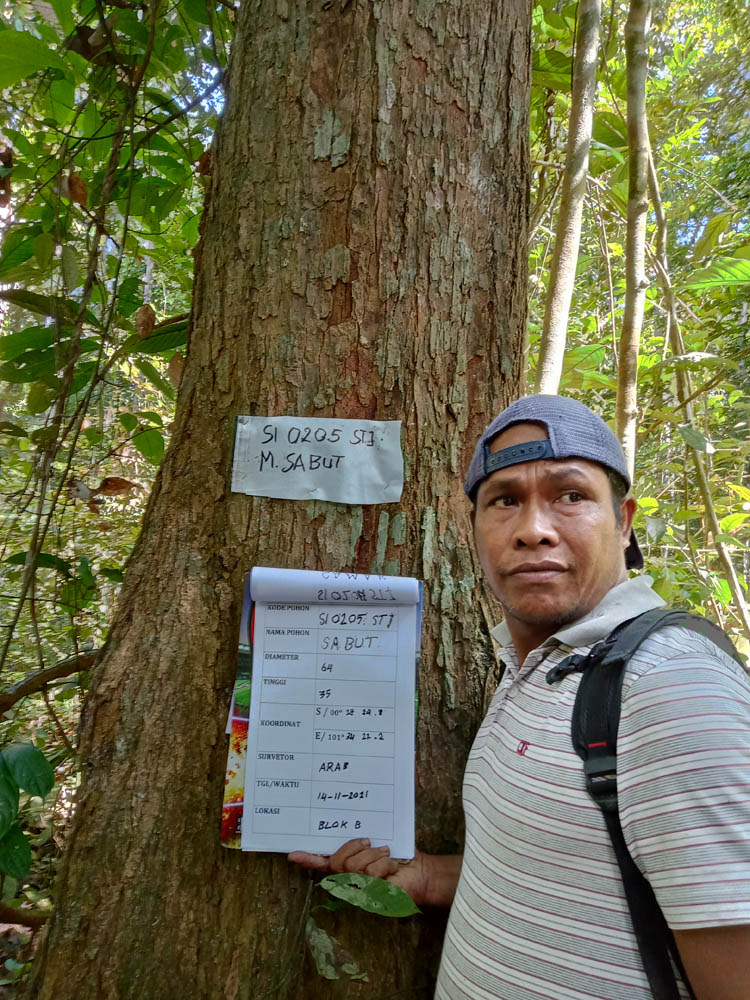 SI 0205 STJ.
M. SABUT
KODE POHON SI 0205 STJ
NAMA POHON SABUT
DIAMETER 64
TINGGI 35
KOORDINAT
S/00°
E/101°
SURVEYOR ARAB
TGL/WAKTU 14-11-2021
LOKASI BLOK B